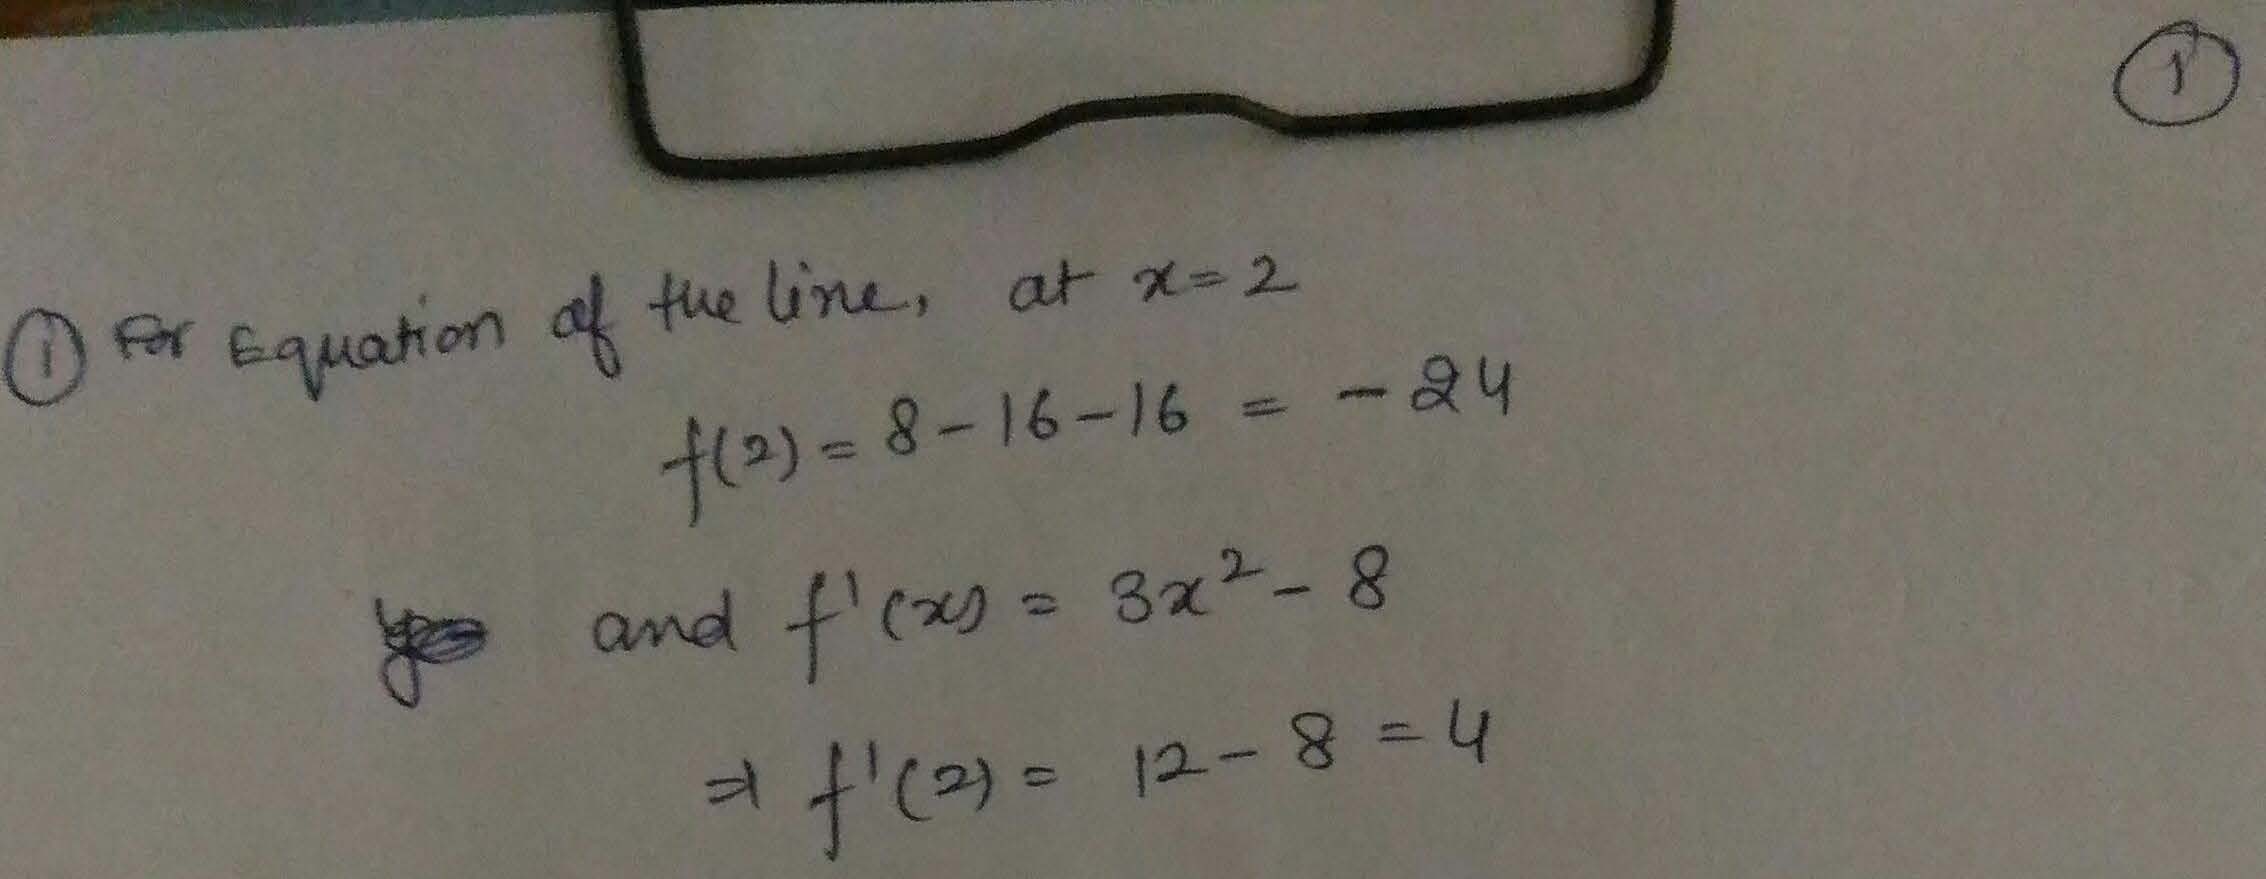 ①
① For Equation of the line, at x=2
f(2) = 8-16-16 = -24
and f'(x) = 3x² - 8
⇒ f'(2) = 12 - 8 = 4